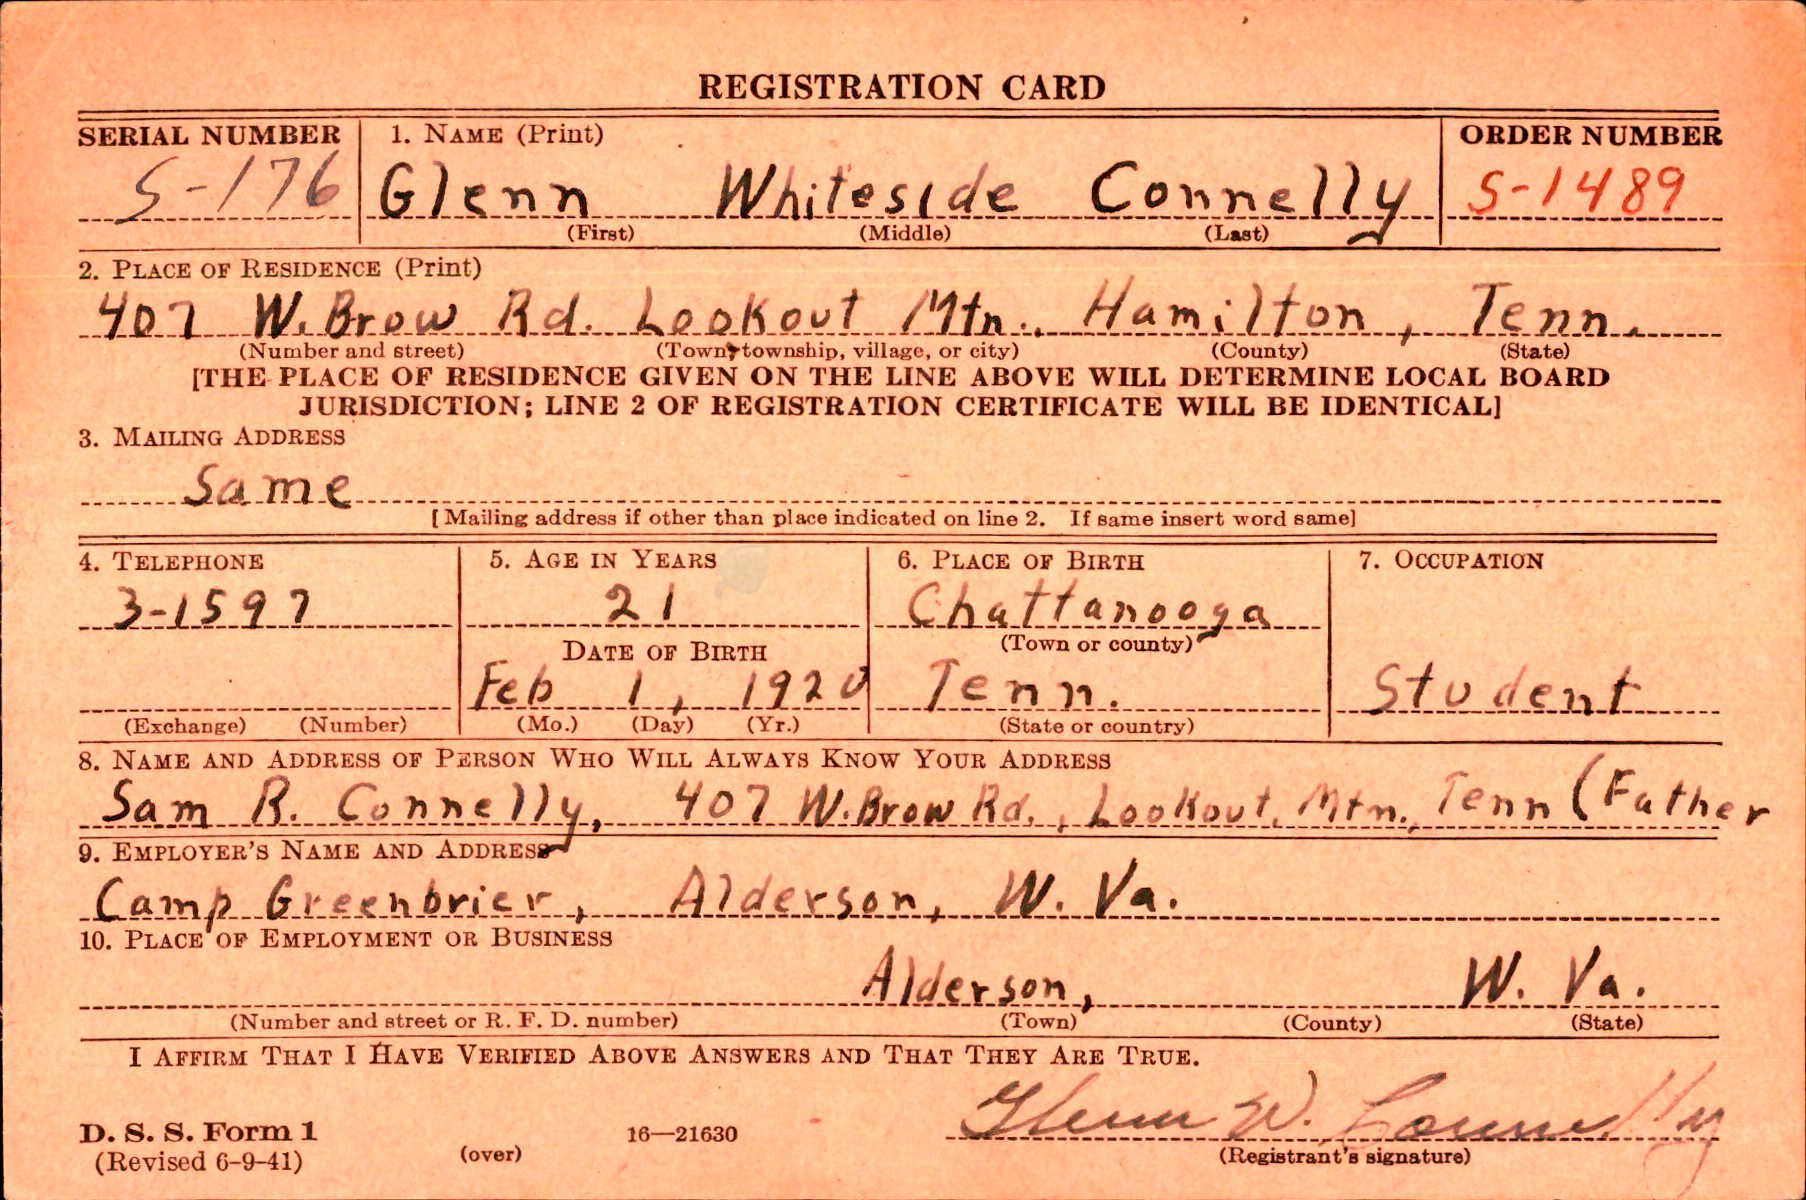 REGISTRATION CARD
SERIAL NUMBER 1. NAME (Print) ORDER NUMBER
S-176 Glenn Whiteside Connelly S-1489
(First) (Middle) (Last)
2. PLACE OF RESIDENCE (Print)
407 W. Brow Rd. Lookout Mtn., Hamilton, Tenn.
(Number and street) (Town, township, village, or city) (County) (State)
[THE PLACE OF RESIDENCE GIVEN ON THE LINE ABOVE WILL DETERMINE LOCAL BOARD
JURISDICTION; LINE 2 OF REGISTRATION CERTIFICATE WILL BE IDENTICAL]
3. MAILING ADDRESS
Same
[Mailing address if other than place indicated on line 2. If same insert word same]
4. TELEPHONE 5. AGE IN YEARS 6. PLACE OF BIRTH 7. OCCUPATION
3-1597 21 Chattanooga
DATE OF BIRTH (Town or county)
Feb 1, 1920 Tenn. Student
(Exchange) (Number) (Mo.) (Day) (Yr.) (State or country)
8. NAME AND ADDRESS OF PERSON WHO WILL ALWAYS KNOW YOUR ADDRESS
Sam R. Connelly, 407 W. Brow Rd., Lookout, Mtn., Tenn (Father
9. EMPLOYER'S NAME AND ADDRESS
Camp Greenbrier, Alderson, W. Va.
10. PLACE OF EMPLOYMENT OR BUSINESS
Alderson, W. Va.
(Number and street or R. F. D. number) (Town) (County) (State)
I AFFIRM THAT I HAVE VERIFIED ABOVE ANSWERS AND THAT THEY ARE TRUE.
Glenn W. Connelly
D. S. S. Form 1 16—21630
(Revised 6-9-41) (over) (Registrant's signature)